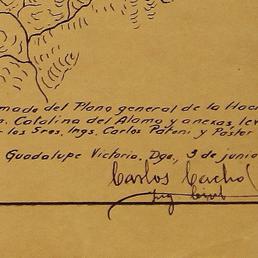 mado del Plano general de la Hac
n. Catalina del Alamo y anexas, lev
los Sres. Ings. Carlos Patoni y Pastor
Guadalupe Victoria, Dgo., 3 de junio
Carlos Cacho
Ing Civil